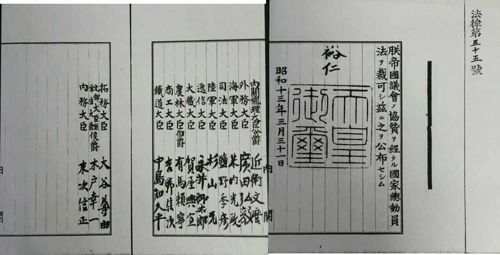 法律第五十五號
朕帝國議會ノ協賛ヲ經タル國家總動員
法ヲ裁可シ玆ニ之ヲ公布セシム
裕仁
天皇御璽
昭和十三年三月三十一日
內閣
內閣總理大臣公爵 近衛文麿
外務大臣 廣田弘毅
海軍大臣 米內光政
司法大臣 鹽野季彥
陸軍大臣 杉山元
遞信大臣 永井柳太郎
大藏大臣 賀屋興宣
農林大臣伯爵 有馬賴寧
商工大臣 吉野信次
鐵道大臣 中島知久平
內閣
拓務大臣 大谷尊由
大臣侯爵 木戶幸一
內務大臣 末次信正